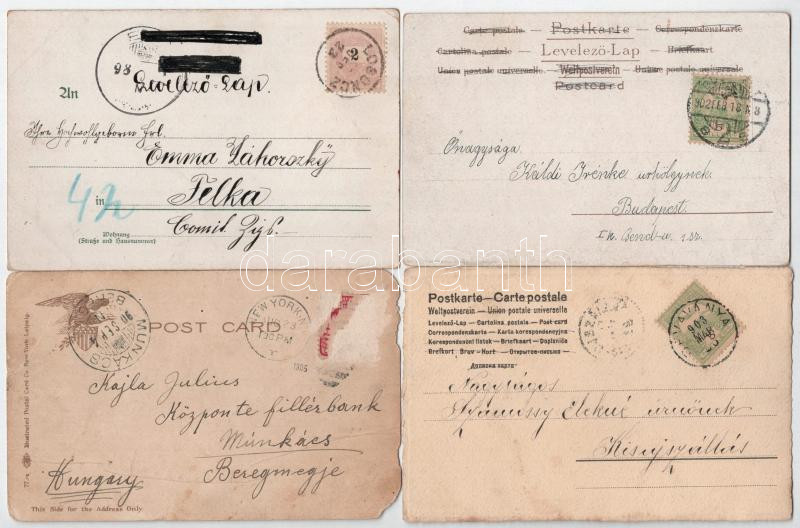 98
2
LOSONCZ
Levelező-Lap.
An
Ihre Hochwohlgeboren Frl.
Emma Záhorszky
in Felka
Comit. Zips.
Wohnung
(Straße und Hausnummer)
Carte postale — Postkarte — Correspondenzkarte
Cartolina postale — Levelező-Lap — Briefkaart
Union postale universelle — Weltpostverein — Union postale universelle
Postcard
Önagysága
Káldi Irénke urhölgynek
Budapest.
darabanth
POST CARD
NEW YORK, N.
1 30 PM
1905
MUNKÁCS
Kajla Julius
Központe fillérbank
Munkács
Beregmegje
Hungary
Illustrated Postal Card Co. New York-Leipzig.
This Side for the Address Only
Postkarte — Carte postale
Weltpostverein — Union postale universelle
Levelező-Lap — Cartolina postale — Post-card
Correspondenzkarte — Karta korespondencyjna
Korespondenční lístek — Briefkaart — Dopisnice
Brefkort Brev-Kort — Открытое письмо
Дописна карта
DÉVAVÁNYA
903
MÁR
Nagyságos
úrnőnek
Kisújszállás